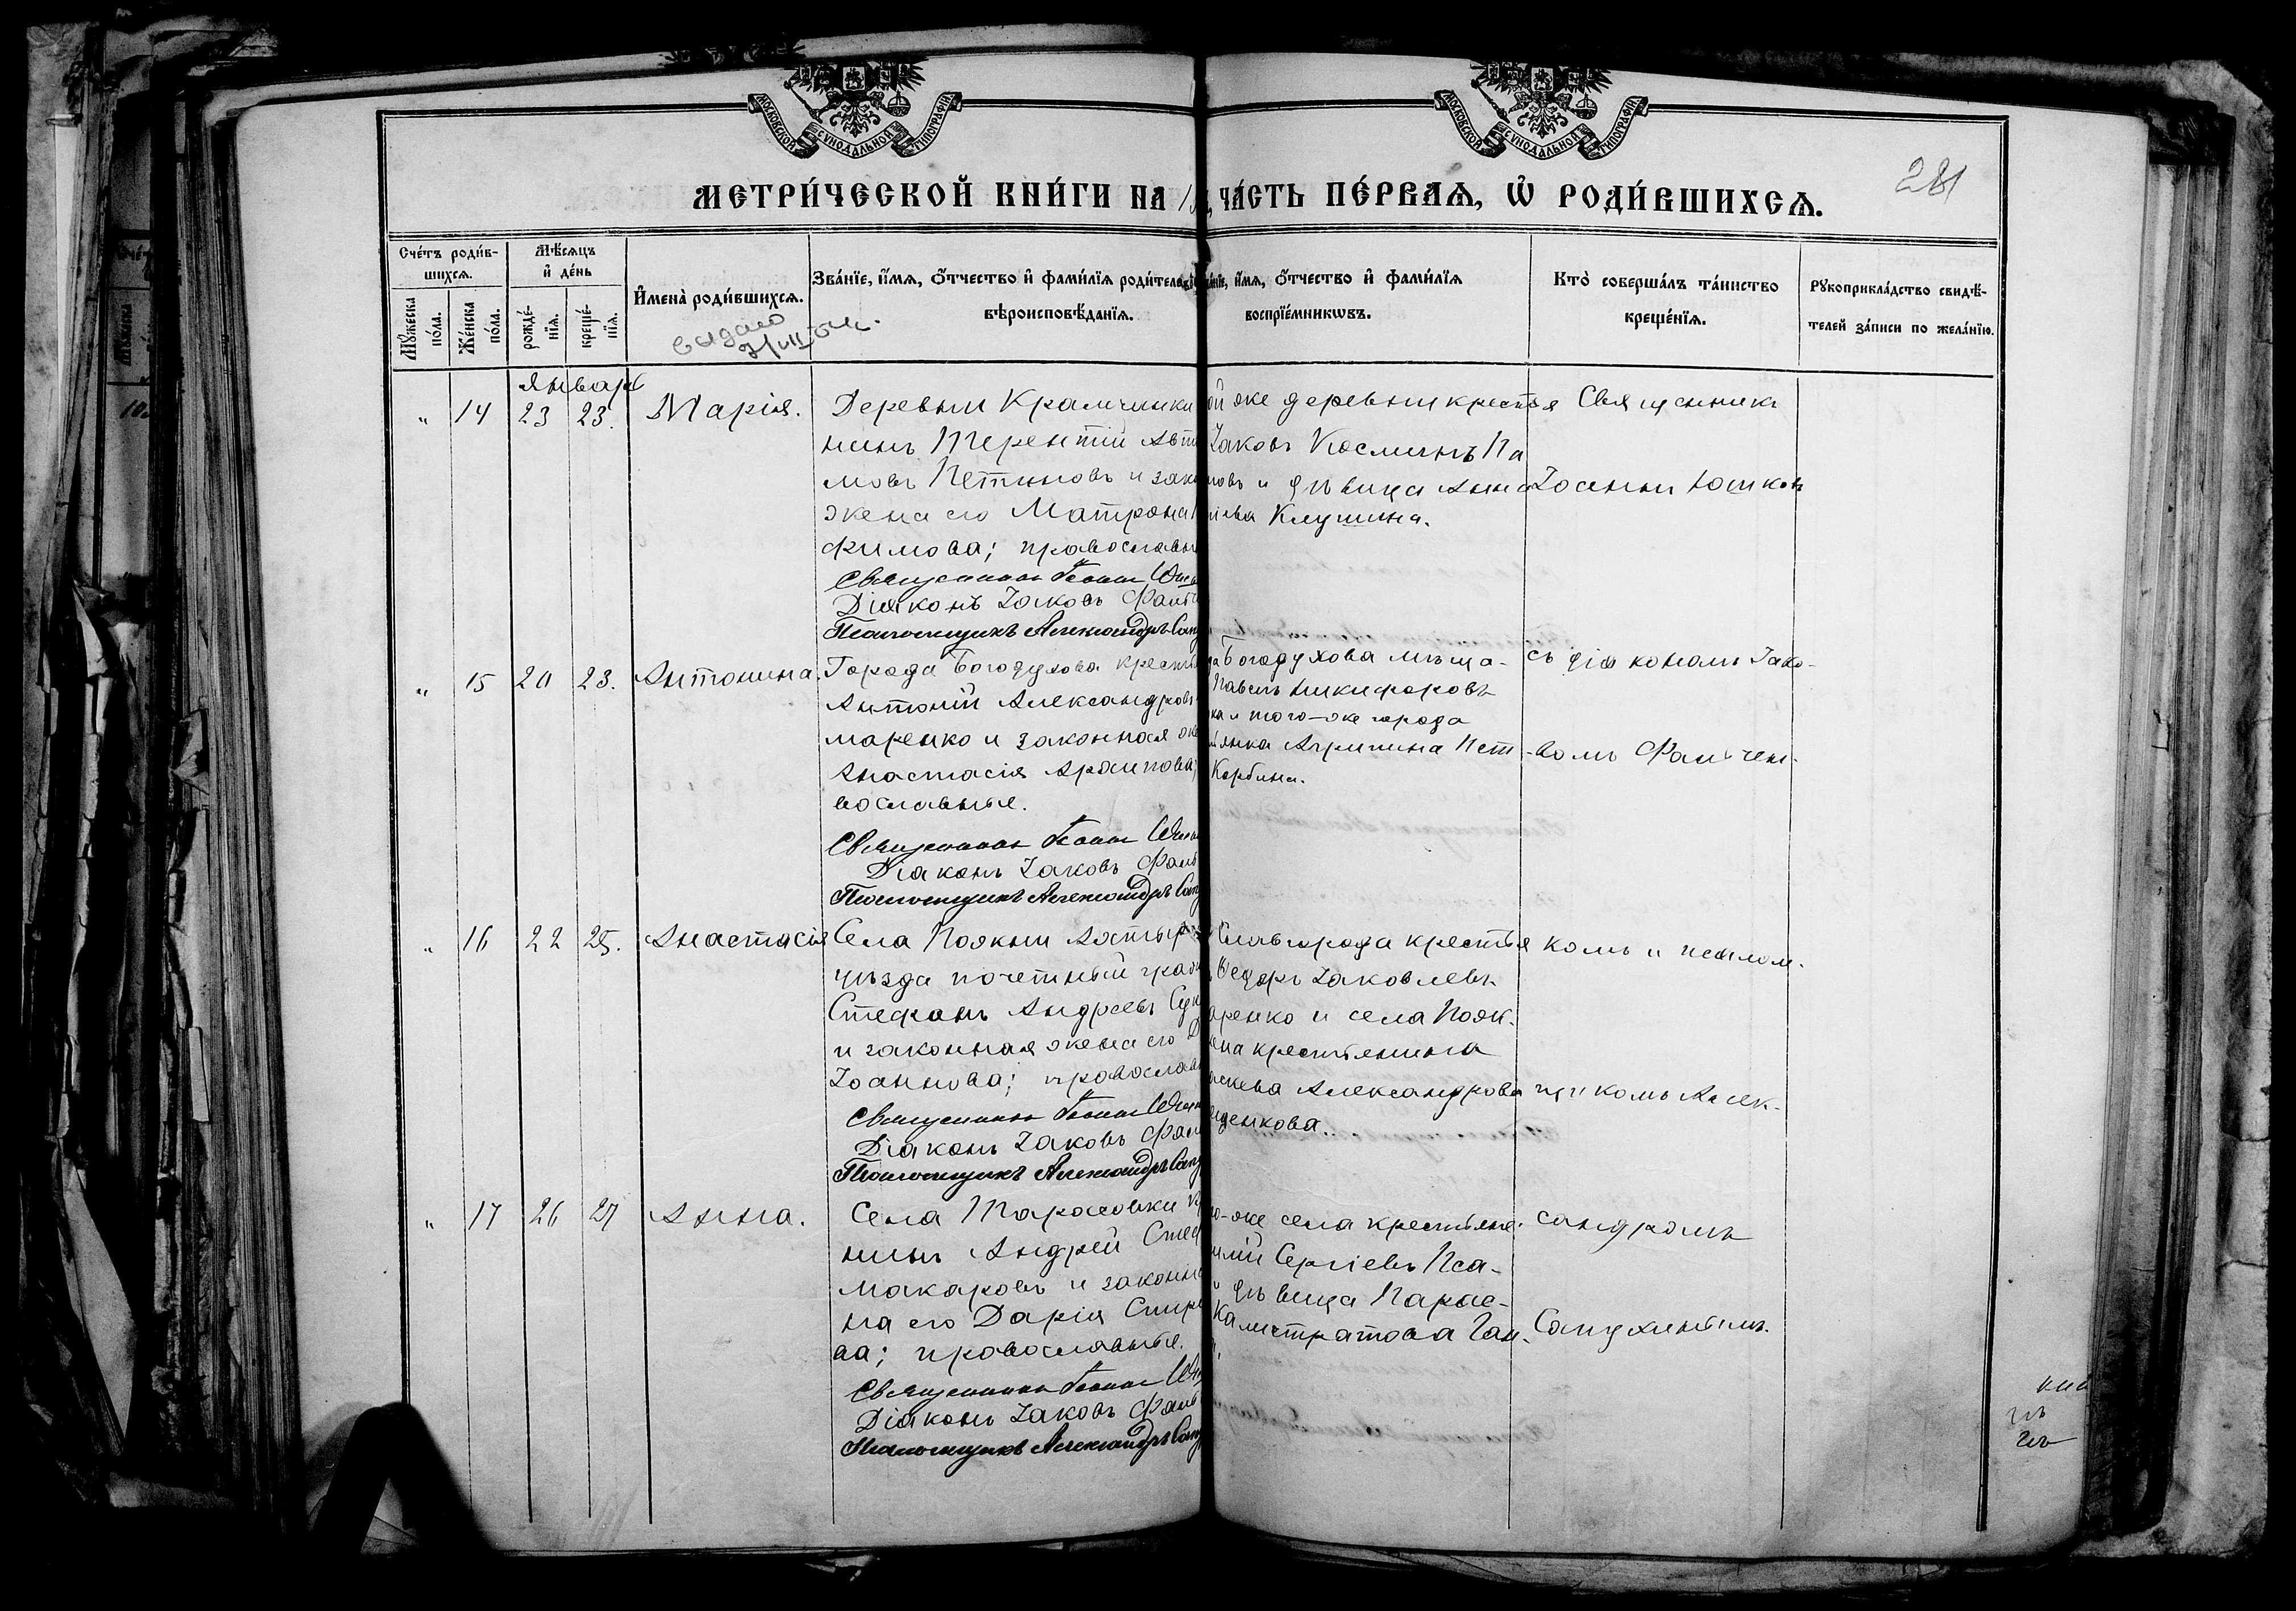 МОСКОВСКОЙ СѴНОДАЛЬНОЙ ТИПОГРАФІИ
МОСКОВСКОЙ СѴНОДАЛЬНОЙ ТИПОГРАФІИ
281
МЕТРИ́ЧЕСКОЙ КНИ́ГИ НА
ЧА́СТЬ ПЕ́РВАѦ, Ѡ҆ РОДИ́ВШИХСѦ.
Сче́тъ роди́в-
шихсѧ.
Мꙋжеска по́ла.
Же́нска по́ла.
Мѣ́сѧцъ
и҆ де́нь
рожде́-
нїѧ.
креще́-
нїѧ.
И҆мена̀ роди́вшихсѧ.
Зва́нїе, и҆́мѧ, ѻ҆́тчество и҆ фами́лїѧ роди́тел
вѣроисповѣ́данїѧ.
и҆́мѧ, ѻ҆́тчество и҆ фами́лїѧ
воспрїе́мникѡвъ.
Кто̀ соверша́лъ та́инство
креще́нїѧ.
Рꙋкоприкла́дство свидѣ́-
телей за́писи по жела́нїю.
выдано
Январь
" 14 23 23. Марія.
Деревни Крамчинки
нинъ Терентій Авт
мовъ Петиновъ и зак
жена его Матрона
фимова; православн
Священникъ Іоаннъ Юш
Діяконъ Іаковъ Фаль
Псаломщикъ Александръ Сап
ой же деревни крестья
Іаковъ Косминъ Па
новъ и дѣвица Анна
ева Клушина.
Священникъ
Іоаннъ Юшковъ
" 15 20 23. Антонина.
Города Богодухова крестья
Антоній Александровъ
маренко и законная же
Анастасія Архипова;
вославные.
Священникъ Іоаннъ Юшк
Діаконъ Іаковъ Фаль
Псаломщикъ Александръ Сап
да Богодухова мѣща-
Павелъ Никифоровъ
ка и того-же города
янка Агрипина Пет
Корбина.
съ діякономъ Іако-
вомъ Фальчен-
" 16 22 25. Анастасія
Села Пожни Ахтыр
уѣзда почетный граж
Стефанъ Андреевъ
и законная жена его
Іоаннова; православн
Священникъ Іоаннъ Юшк
Діаконъ Іаковъ Фаль
Псаломщикъ Александръ Сап
Славгорода крестья
Ѳедоръ Іаковлевъ
аренко и села Пож-
ена крестьянина
аскева Александрова
денкова.
комъ и псалом-
щикомъ Алек-
" 17 26 27 Анна.
Села Тарасовки к
нинъ Андрей Стеф
Макаровъ и законн
на его Дарія Спир
ва; православные.
Священникъ Іоаннъ Юш
Діаконъ Іаковъ Фаль
Псаломщикъ Александръ Сап
о-же села крестьяне
Сергіевъ Пса-
дѣвица Парас-
Калистратова Ган-
сандромъ
Сапухинымъ.